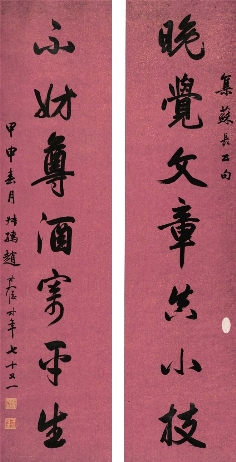 集蘇長公句
晚覺文章真小技
不妨尊酒寄平生
甲申春月
趙
時年七十又一